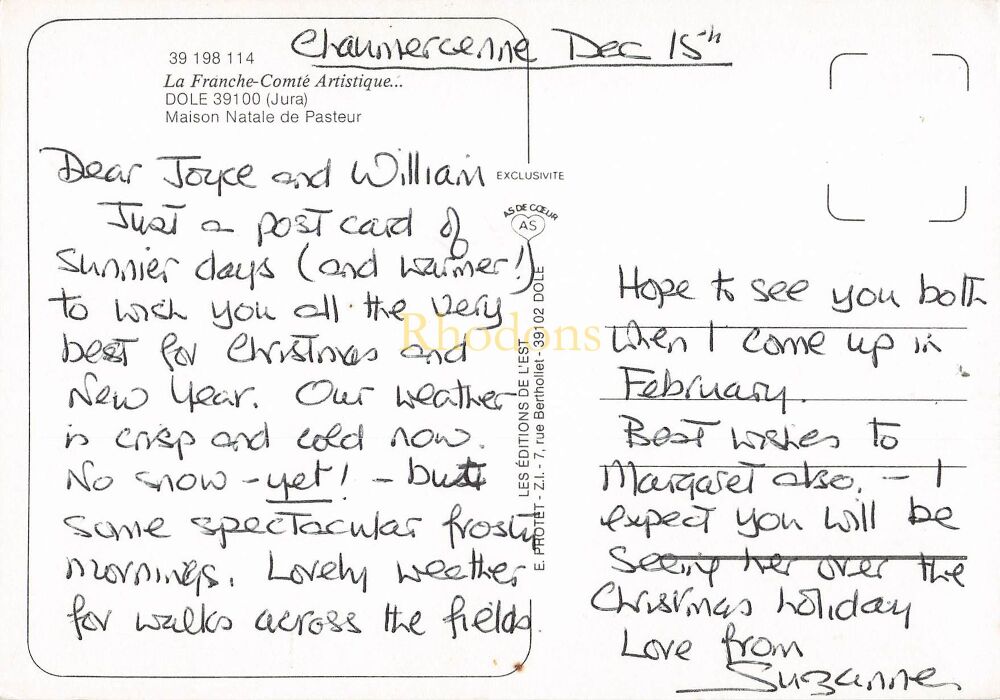 Chaumercenne Dec 15th
39 198 114
La Franche-Comté Artistique...
DOLE 39100 (Jura)
Maison Natale de Pasteur
Dear Joyce and William
Just a post card of
sunnier days (and warmer!)
to wish you all the very
best for Christmas and
New Year. Our weather
is crisp and cold now.
No snow - yet! - but
some spectacular frosty
mornings. Lovely weather
for walks across the fields.
EXCLUSIVITE
AS DE CŒUR
AS
LES ÉDITIONS DE L'EST
E. PROTET - Z.I. - 7, rue Berthollet - 39102 DOLE
Rhodons
Hope to see you both
when I come up in
February.
Best wishes to
Margaret also. - I
expect you will be
seeing her over the
Christmas holiday
Love from
Suzanne